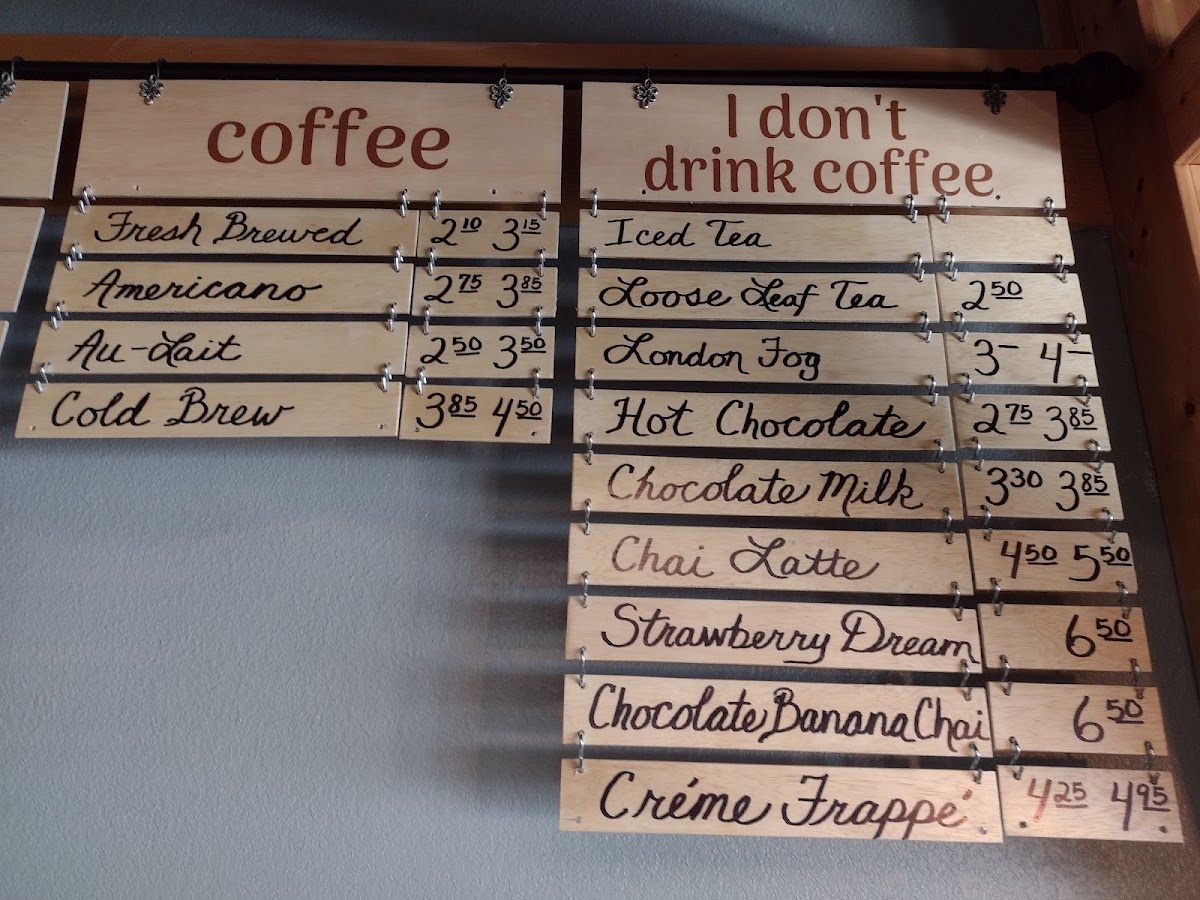 coffee
Fresh Brewed 2.10 3.15
Americano 2.75 3.85
Au-Lait 2.50 3.50
Cold Brew 3.85 4.50
I don't
drink coffee.
Iced Tea
Loose Leaf Tea 2.50
London Fog 3- 4-
Hot Chocolate 2.75 3.85
Chocolate Milk 3.30 3.85
Chai Latte 4.50 5.50
Strawberry Dream 6.50
Chocolate Banana Chai 6.50
Créme Frappé 4.25 4.95